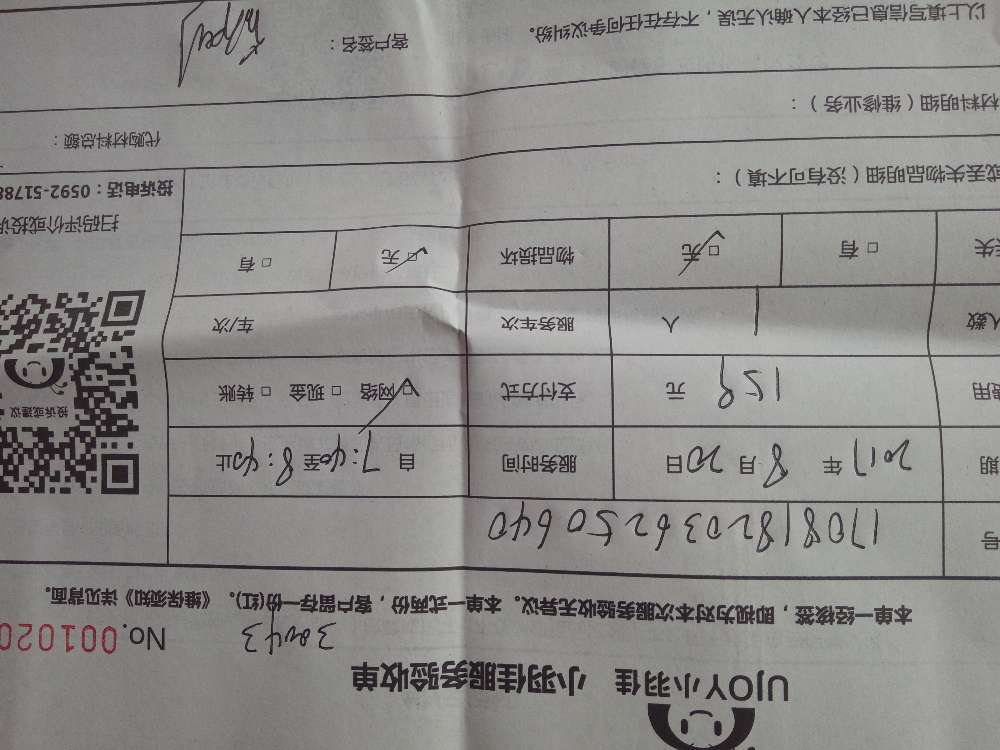 UJOY小羽佳 小羽佳服务验收单
3043 No.001020
本单一经接签，即视为对本次服务验收无异议。本单一式两份，客户留存一份(红)。《维保须知》详见背面。
号 1708182036250640
期 2017 年 8 月 20 日 服务时间 自 7:40 至 8:40 止
费用 159 元 支付方式 □ 网络 □ 现金 □ 转账
人数 1 人 服务车次 车/次
失 □ 有 □ 无 物品损坏 □ 无 □ 有
投诉或建议
扫码评价或投诉
投诉电话：0592-5178
或丢失物品明细（没有可不填）：
代购材料总额：
材料明细（维修业务）：
以上填写信息已经本人确认无误，不存在任何争议纠纷。 客户签名：